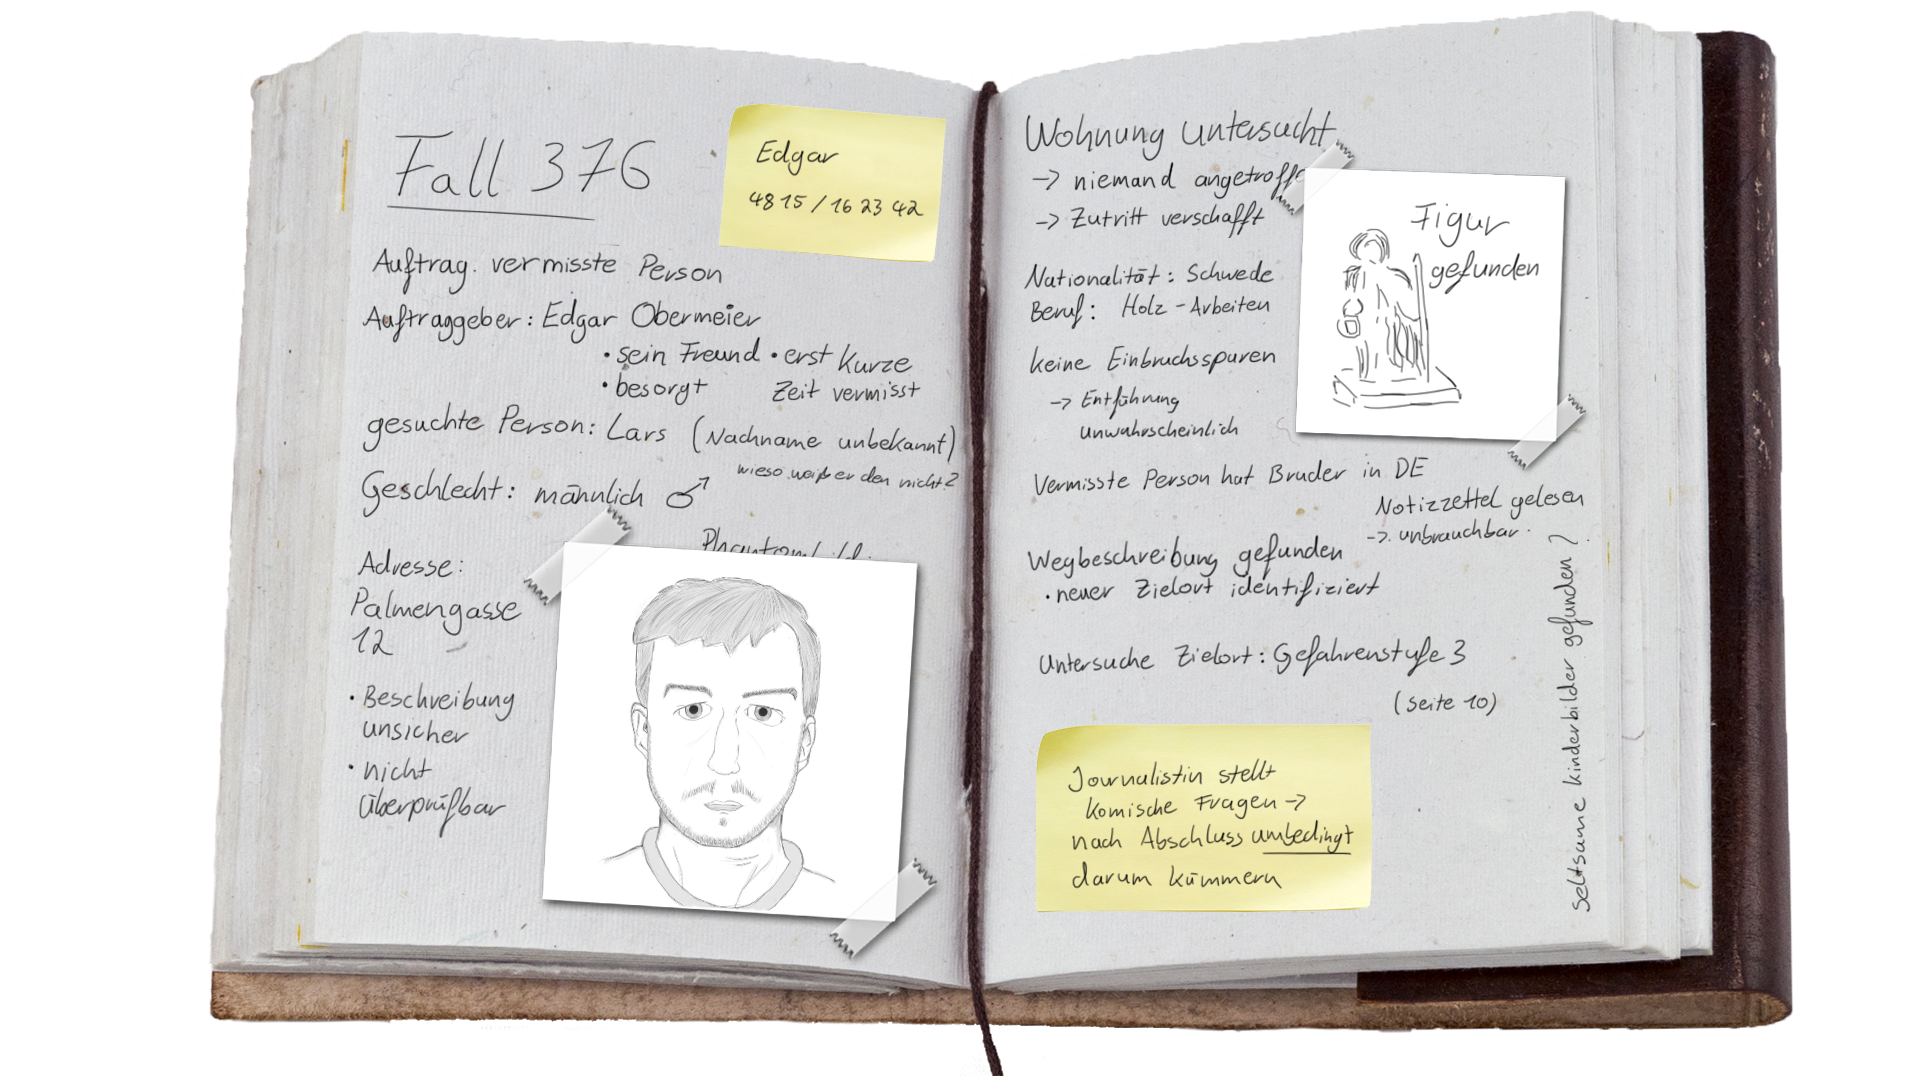 Fall 376
Edgar
4815 / 16 23 42
Auftrag. vermisste Person
Auftraggeber: Edgar Obermeier
• sein Freund • erst kurze
• besorgt Zeit vermisst
gesuchte Person: Lars (Nachname unbekannt)
wieso weiß er den nicht?
Geschlecht: männlich ♂
Adresse:
Palmengasse
12
• Beschreibung
unsicher
• nicht
überprüfbar
Wohnung untersucht
-> niemand
-> Zutritt verschafft
Figur
gefunden
Nationalität: Schwede
Beruf: Holz-Arbeiten
keine Einbruchsspuren
-> Entführung
unwahrscheinlich
Vermisste Person hat Bruder in DE
Notizzettel gelesen
-> unbrauchbar.
Wegbeschreibung gefunden
• neuer Zielort identifiziert
Untersuche Zielort: Gefahrenstufe 3
(Seite 10)
Journalistin stellt
komische Fragen ->
nach Abschluss umbedingt
darum kümmern
seltsame kinderbilder gefunden?